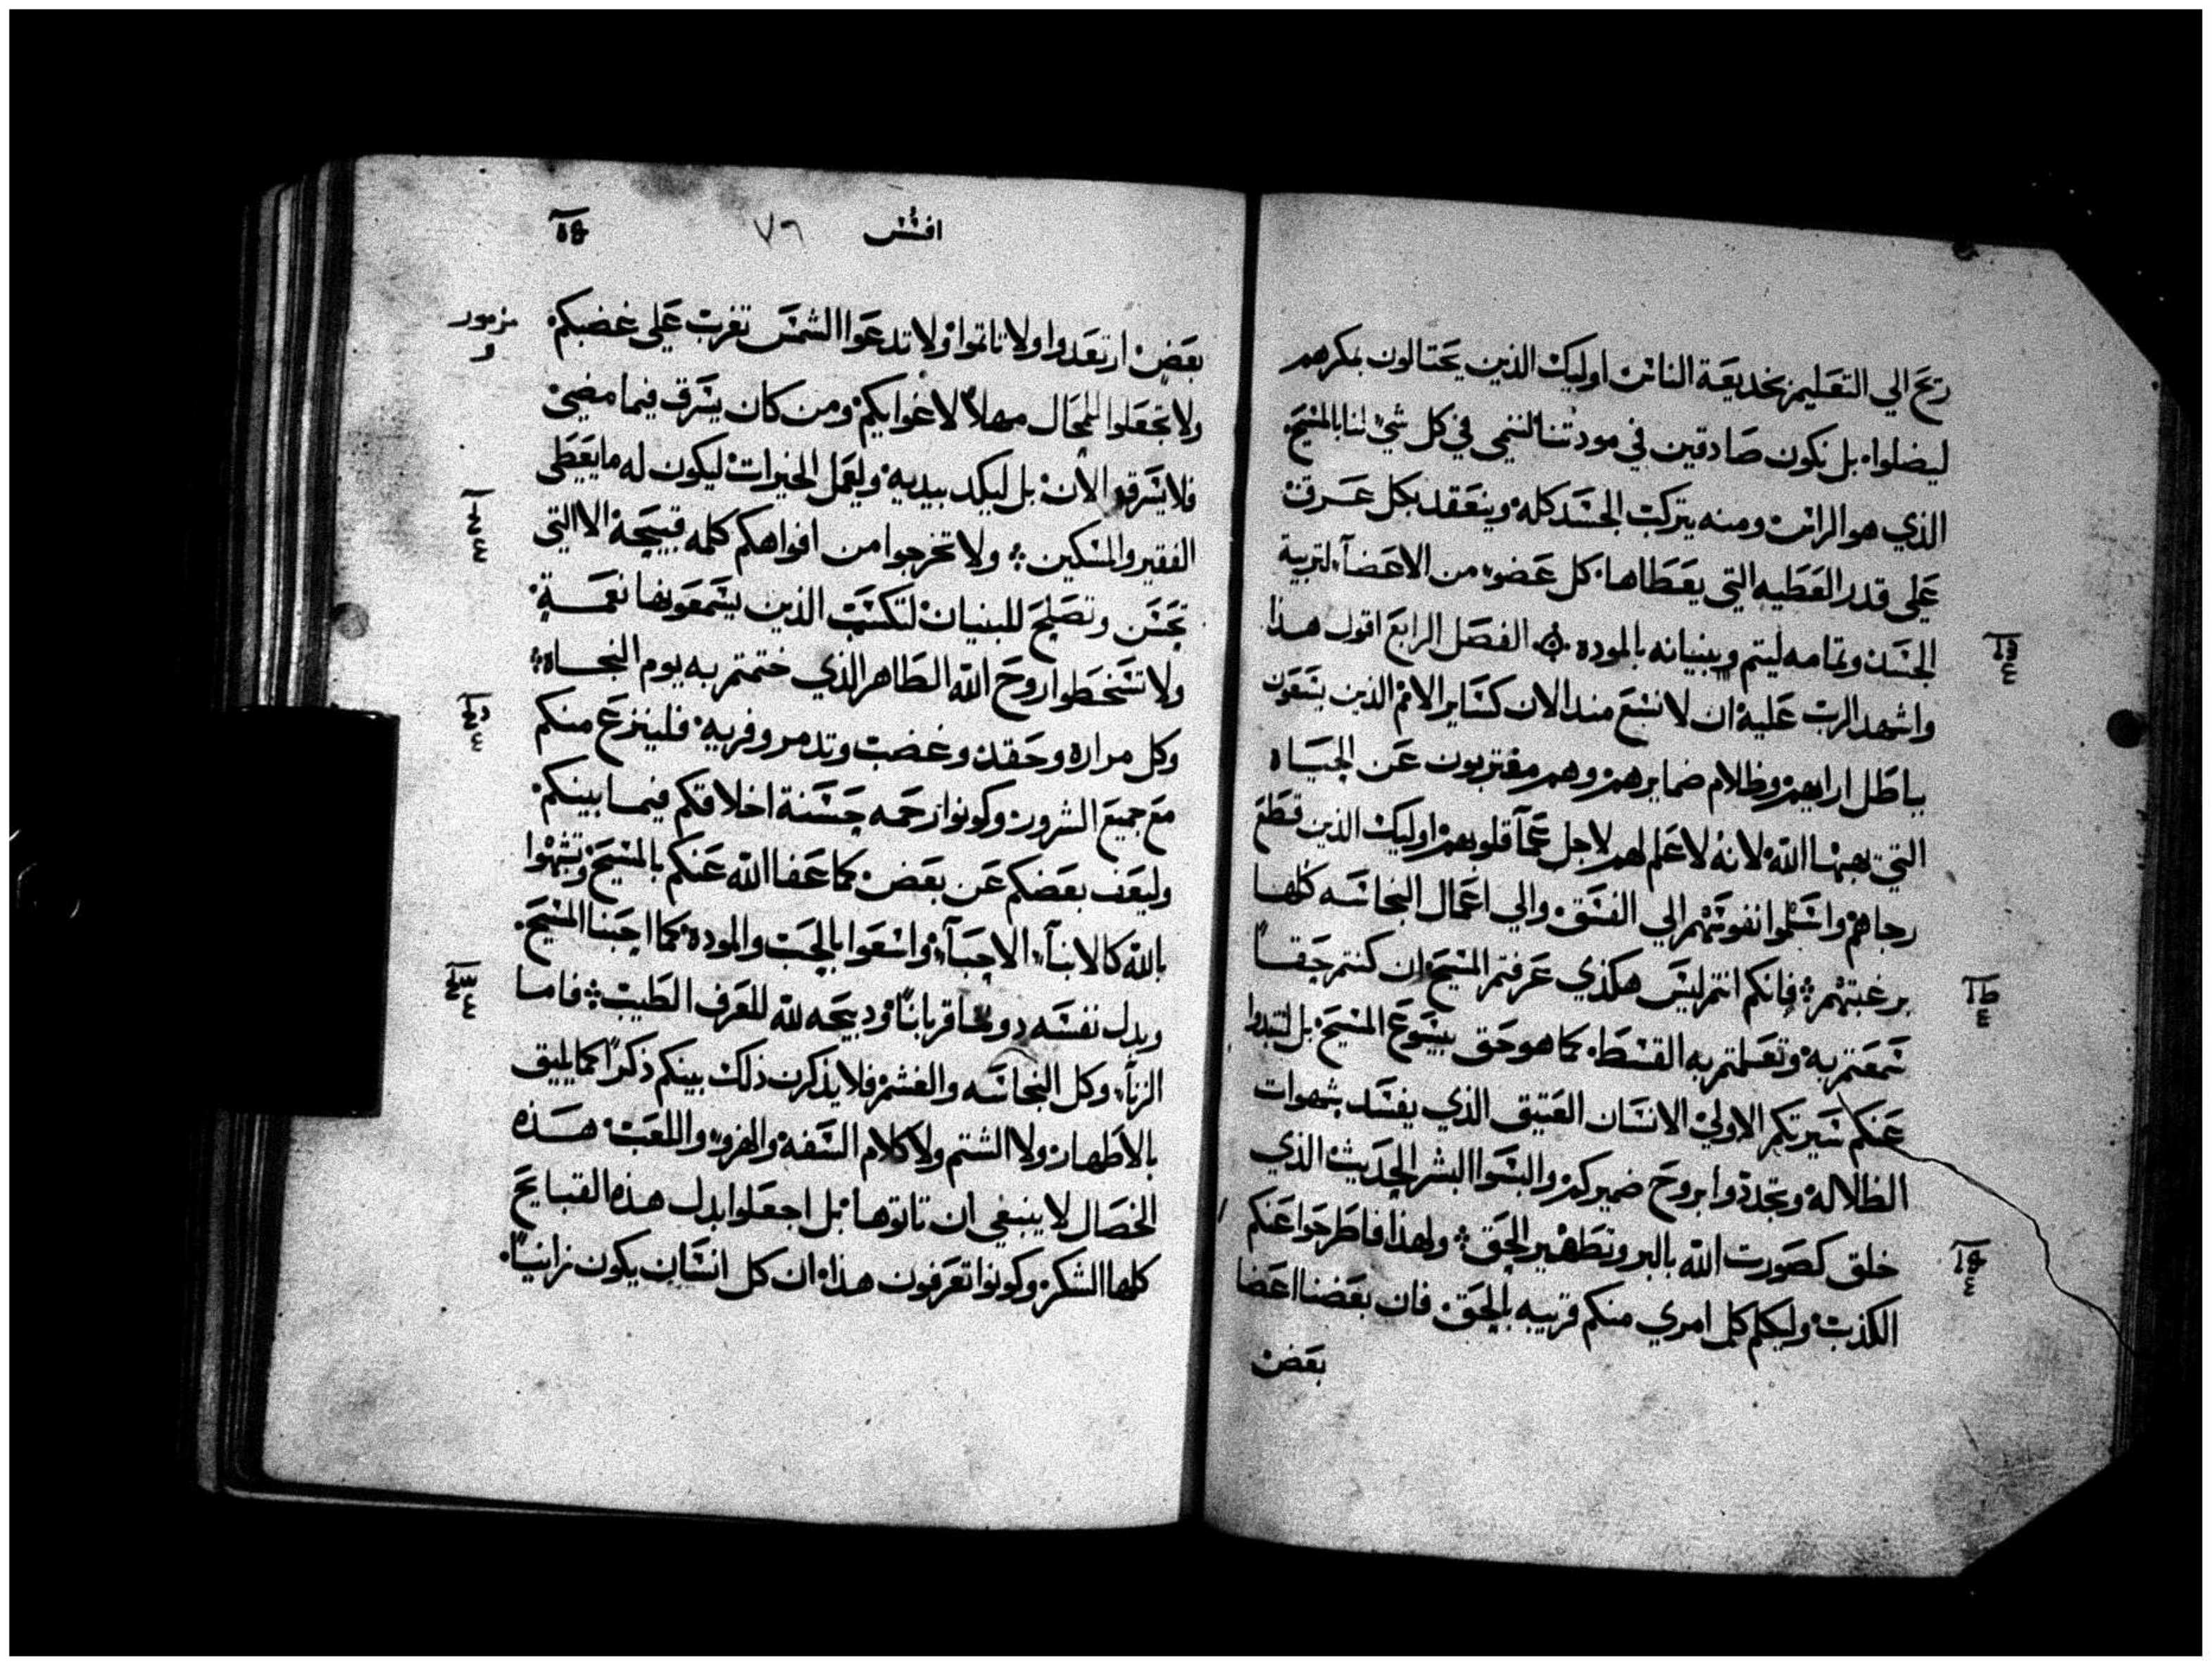 ريح الي التعليم بخديعة الناس اوليك الذين يحتالون بمكرهم
ليضلوا. بل نكون صادقين في مودتنا لننمي في كل شي لنا بالمسيح
الذي هو الراس ومنه يتركب الجسد كله وينعقد بكل عرق
علي قدر العطيه التي يعطاها كل عضو من الاعضآ لتربية
الجسد وتمامه ليتم وبنيانه بالموده الفصل الرابع اقول هذا
واشهد الرب عليه ان لا نسع منذ الان كساير الامم الذين يسعون
بباطل ارايهم وظلام ضمايرهم وهم مغتربون عن الحياه
التي يهبها الله لانه لا علم لهم لاجل عمآ قلوبهم اوليك الذين قطع
رجاهم واسلموا نفوسهم الي الفسق والي اعمال النجاسه كلها
برغبتهم فانكم انتم ليس هكذي عرفتم المسيح ان كنتم حقاً
سمعتم به وتعلمتم به القسط كما هو حق بيسوع المسيح بل لتبدوا
عنكم سيرتكم الاولي الانسان العتيق الذي يفسد بشهوات
الظلاله وتجددوا بروح ضميركم والبسوا البشر الحديث الذي
خلق كصورت الله بالبر وتطهير الحق ولهذا فاطرحوا عنكم
الكذب وليكلم كل امري منكم قريبه بالحق فان بعضنا اعضا
بعض
افسس ٧٦
بعض ارتعدوا ولا تاتموا ولا تدعوا الشمس تغرب علي غضبكم
مزمور
ولا تجعلوا للمحال مهلاً لاغوايكم ومن كان يسرق فيما مضي
فلا يسرق الان بل ليكد بيديه وليعمل الخيرات ليكون له ما يعطي
الفقير والمسكين ولا تخرجوا من افواهكم كلمه قبيحة الا التي
تحسن وتصلح للبنيان لتكسب الذين يسمعونها نعمة
ولا تسخطوا روح الله الطاهر الذي ختمتم به يوم النجاه
وكل مراره وحقد وغضب وتدمر وفريه فلينزع منكم
مع جميع الشرور وكونوا رحمه حسنة اخلاقكم فيما بينكم
وليعف بعضكم عن بعض كما عفا الله عنكم بالمسيح وتشبهوا
بالله كالابنآ الاحبآ واسعوا بالحب والموده كما احبنا المسيح
وبدل نفسه دوننا قرباناً ودبيحه لله للعرف الطيب فاما
الزنآ وكل النجاسه والغشم فلا يذكرن ذلك بينكم ذكراً كما يليق
بالاطهار ولا الشتم ولا كلام السفه والهزو واللعب هذه
الخصال لا ينبغي ان تاتوها بل اجعلوا بدل هذه القبايح
كلها الشكر وكونوا تعرفون هذا ان كل انسان يكون زانياً